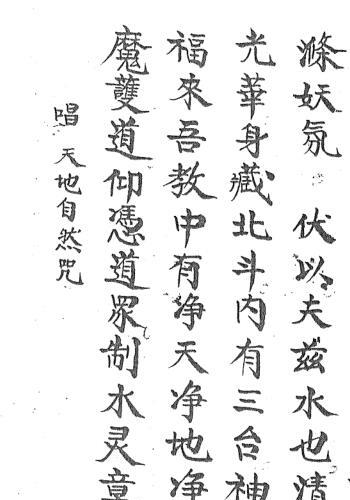 滌妖氛 伏以夫茲水也清
光華身藏北斗內有三台神
福來吾教中有净天净地净
魔護道仰憑道眾制水灵章
唱 天地自然咒